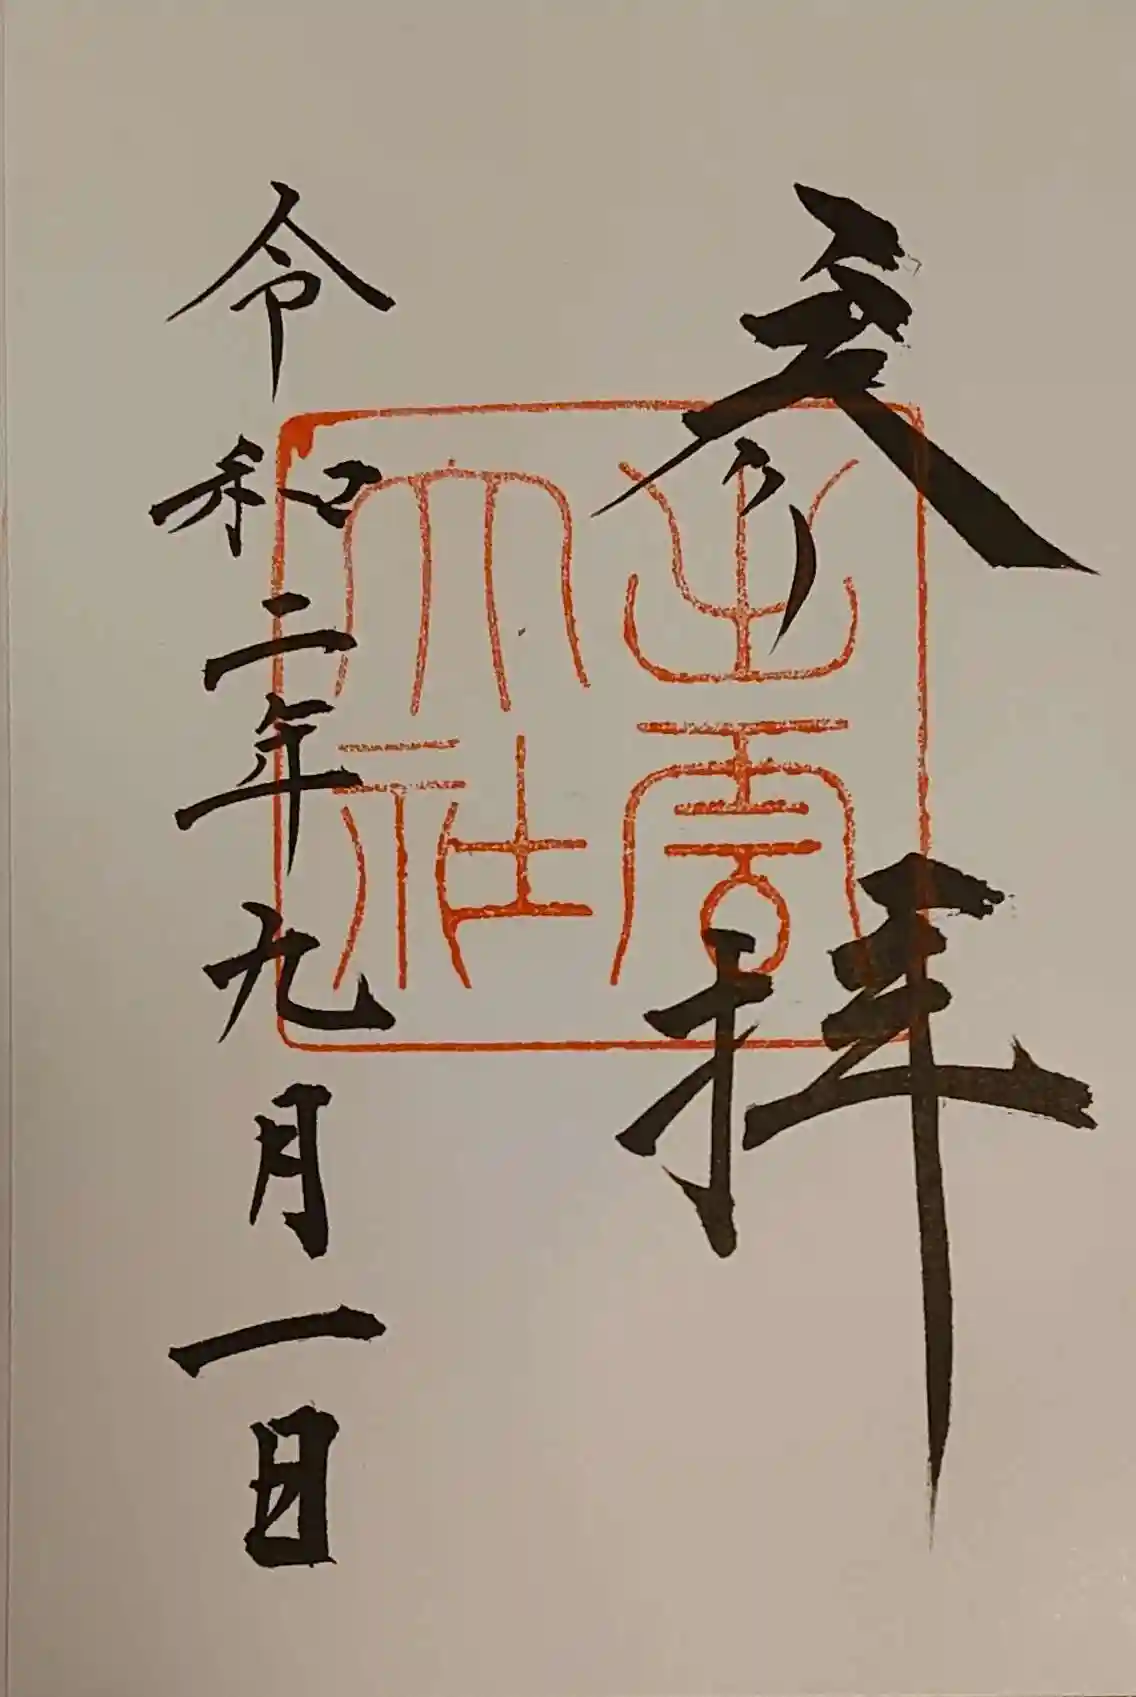 参拝
出雲
大社
令和二年九月一日